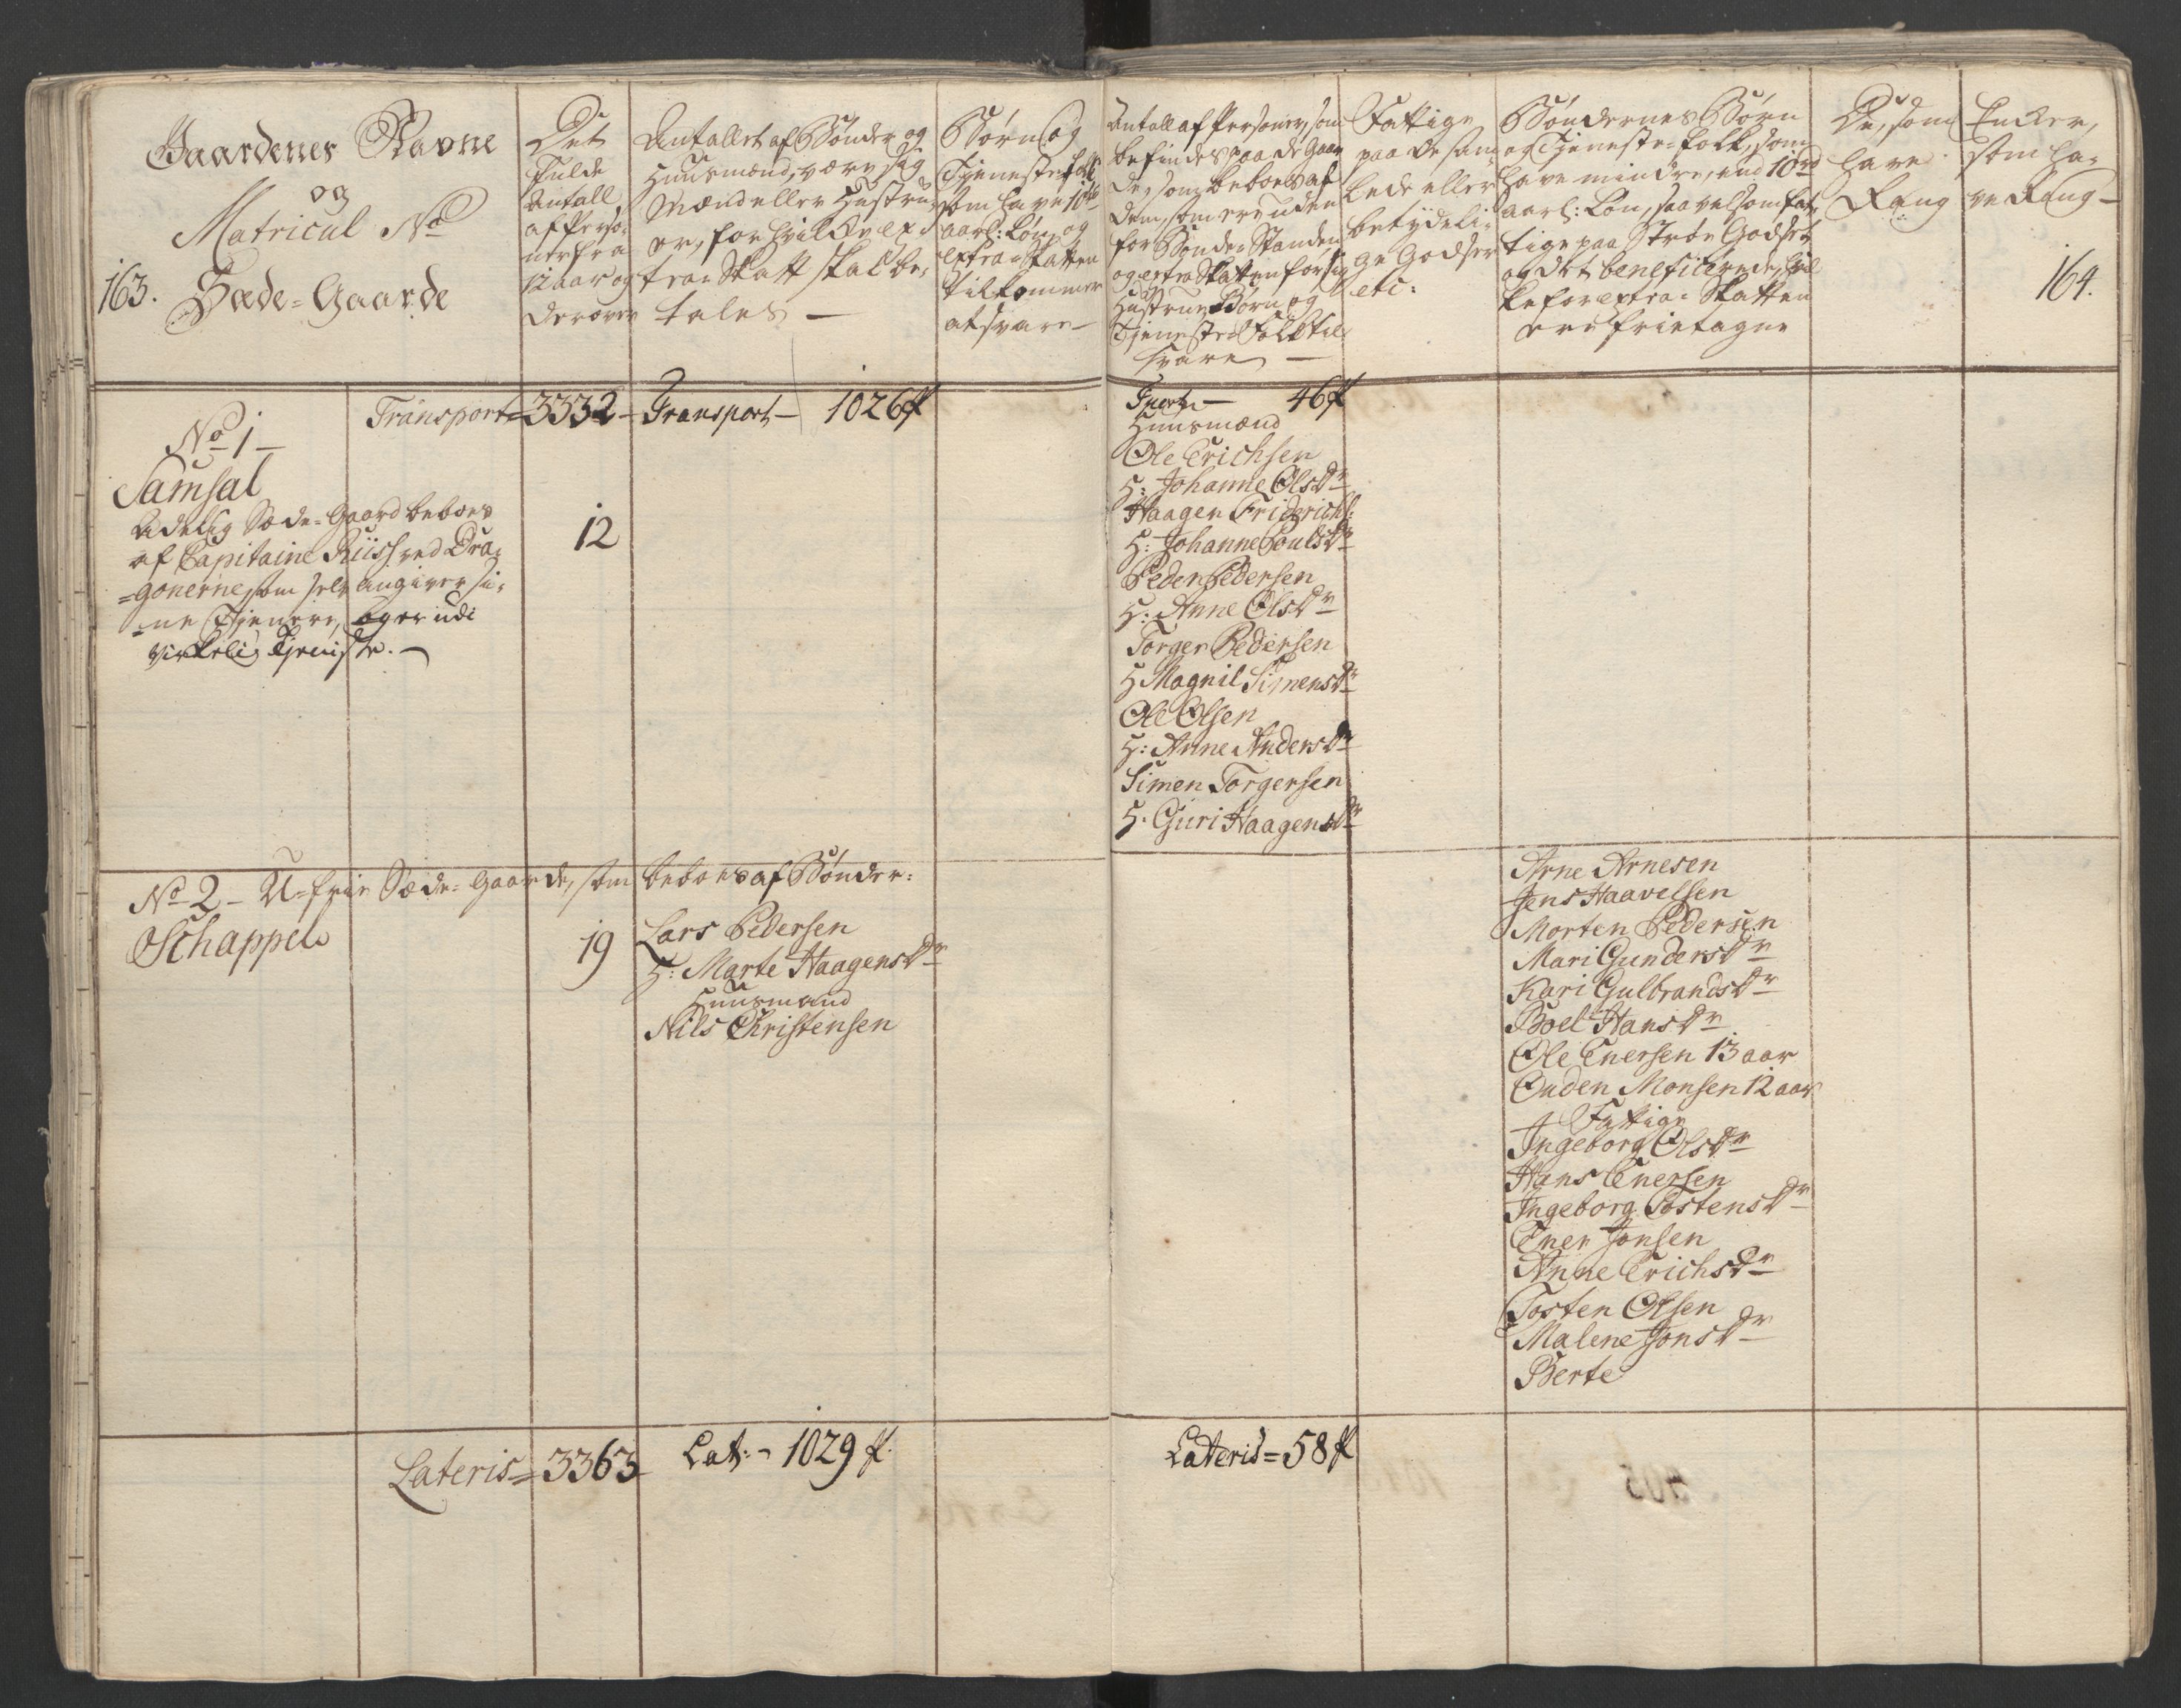 163.
Gaardenes Navne
og
Matricul No
Sæde=Gaarde
Det
fulde
Antall
af Perso-
ner fra
12 aar og
derover
Antallet af Bönder og
Huusmænd, være sig
Mænd eller Hustru-
er, for hvilke ex-
tra Skatt skal be-
tales —
Börn og
Tjenestefolk
som have 10rd
aarl: Lön, og
extra Skatten
tilkommer
at svare —
Antall af Personer, som
befindes paa de Gaar-
de, som beboes af
dem, som ere uden
for Bonde=Standen
og extra Skatten for sig
Hustrue, Börn og
Tjeneste=Folk til-
svare —
Fattige
paa de sam-
lede eller
betydeli-
ge Godser
etc:
Böndernes Börn
og Tjeneste=Folk, som
have mindre, end 10rd
aarl: Lön, saavelsom fat-
tige paa Ströe Godset
og det beneficerede, hvil-
ke for extra=Skatten
ere frietagne
De, som
have
Rang
Encker,
som ha-
ve Rang —
164.
Transport=3332 — Transport — 1026 ß
Tport — 46 ß
No 1 —
Samsal
Adelig Sæde=Gaard beboes
af Capitaine Riis ved Dra-
=gonerne, som selv angiver si-
=ne Tjenere, og er udi
virkelig Tjeniste. —
12
Huusmænd
Ole Erichsen
H: Johanne Olsdr
Haagen Friderichs:
H: Johanne Poulsdr
Peder Pedersen
H: Anne Olsdr
Torger Pedersen
H Magnil Simensdr
Ole Olsen
H: Anne Andersdr
Simen Torgersen
H: Guri Haagensdr
No 2 — U=frie Sæde=Gaarde, som beboes af Bönder:
Schappel
19
Lars Pedersen
H: Marte Haagensdr
Huusmand
Nils Christensen
Arne Arnesen
Jens Haavelsen
Morten Pedersen
Mari Gundersdr
Kari Gulbrandsdr
Boel Hansdr
Ole Enersen 13 aar
Ouden Monsen 12 aar
Fattige
Ingeborg Olsdr
Hans Enersen
Ingeborg Tostensdr
Ener Jonsen
Anne Erichsdr
Tosten Olsen
Malene Jonsdr
Berte
Lateris=3363 Lat: — 1029 ß.
Lateris=58 ß